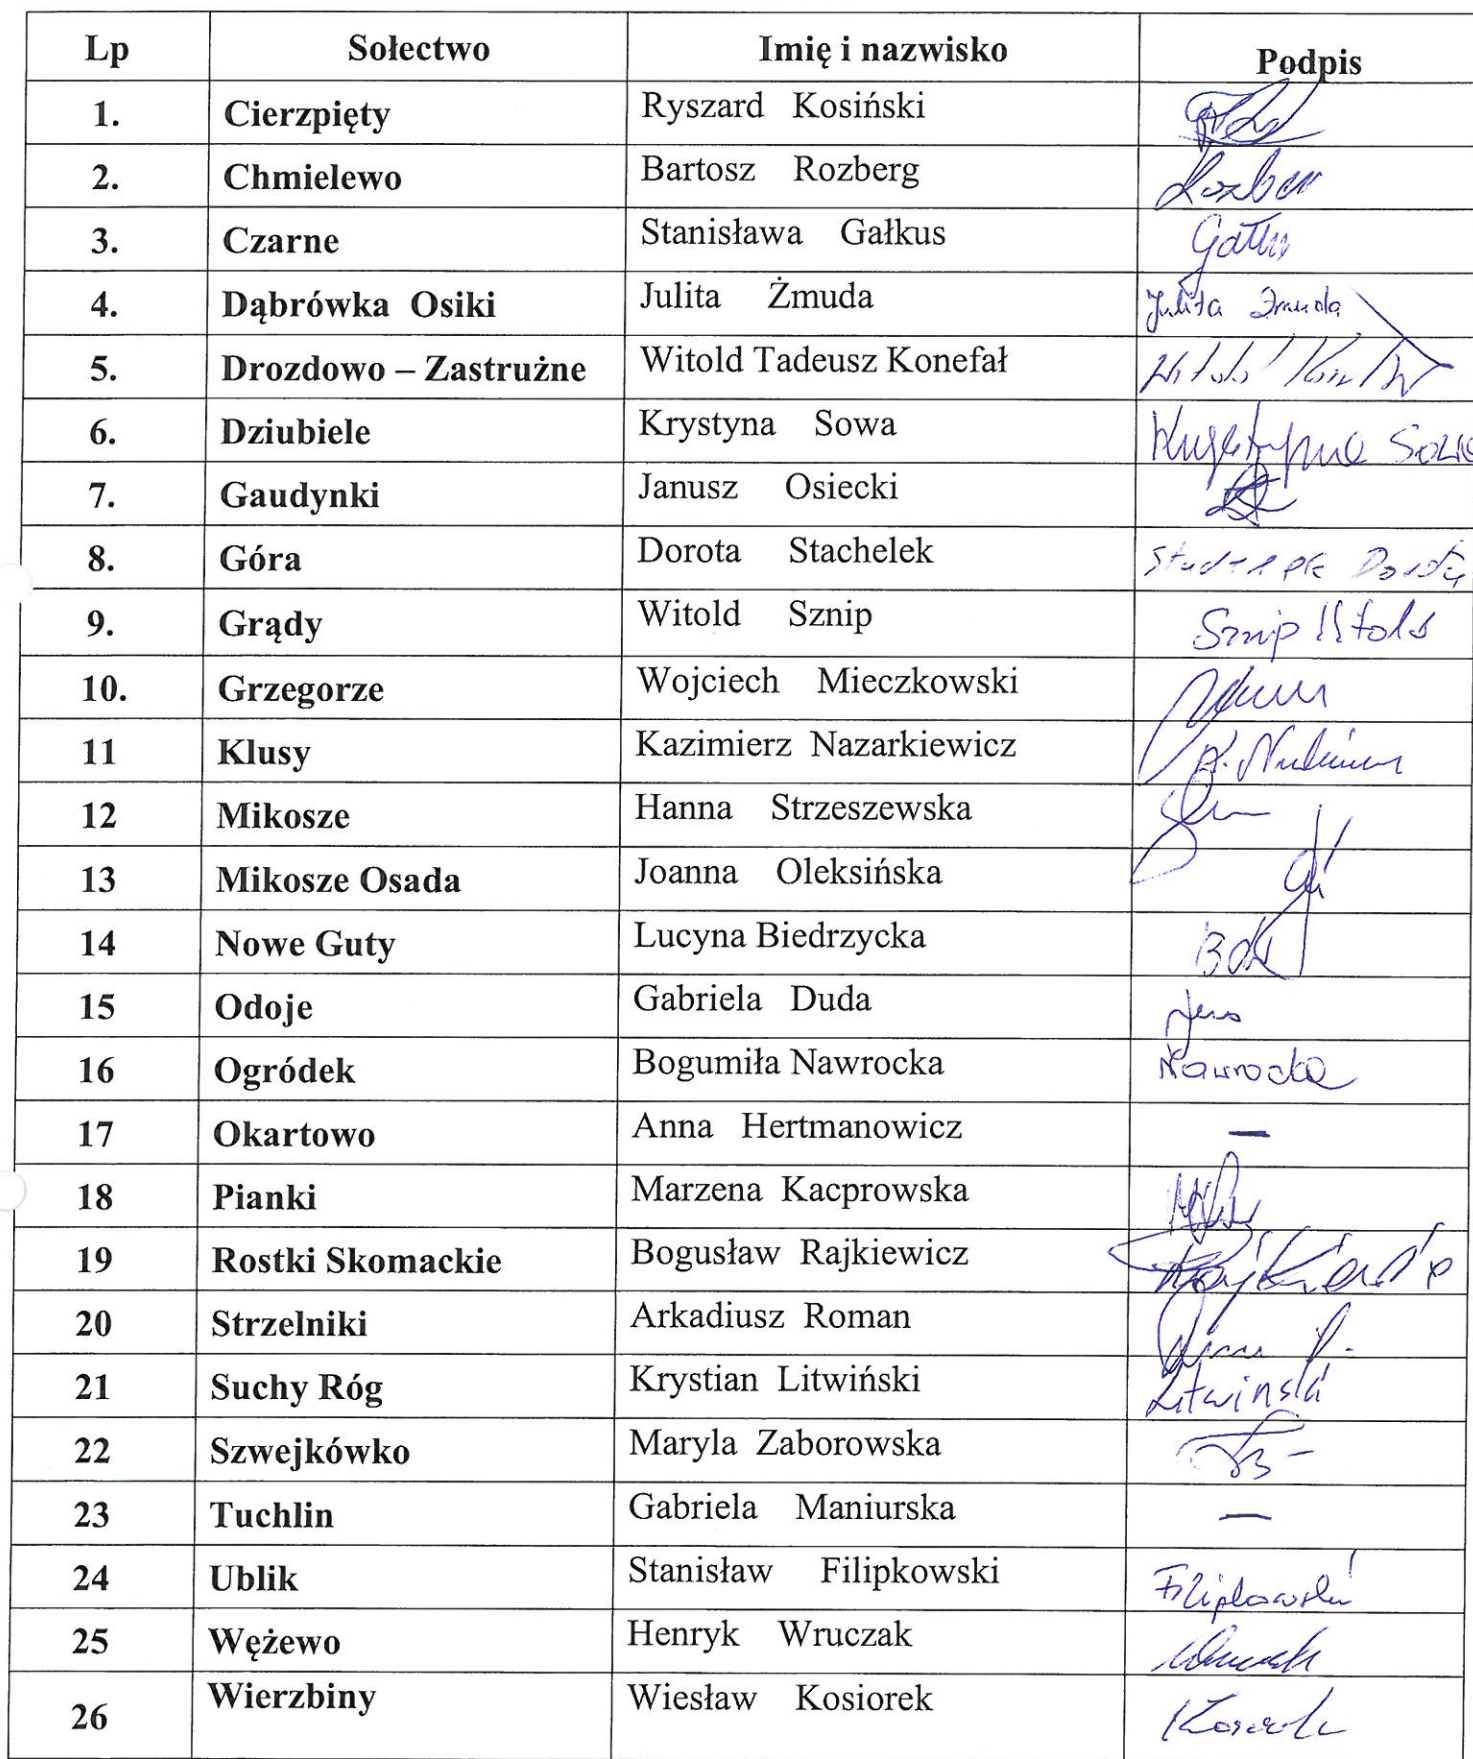 Lp Sołectwo Imię i nazwisko Podpis
1. Cierzpięty Ryszard Kosiński
2. Chmielewo Bartosz Rozberg
3. Czarne Stanisława Gałkus
4. Dąbrówka Osiki Julita Żmuda Julita Żmuda
5. Drozdowo – Zastrużne Witold Tadeusz Konefał Witold
6. Dziubiele Krystyna Sowa Krystyna Sowa
7. Gaudynki Janusz Osiecki
8. Góra Dorota Stachelek Dorota
9. Grądy Witold Sznip Sznip Witold
10. Grzegorze Wojciech Mieczkowski
11 Klusy Kazimierz Nazarkiewicz
12 Mikosze Hanna Strzeszewska
13 Mikosze Osada Joanna Oleksińska
14 Nowe Guty Lucyna Biedrzycka
15 Odoje Gabriela Duda
16 Ogródek Bogumiła Nawrocka Nawrocka
17 Okartowo Anna Hertmanowicz —
18 Pianki Marzena Kacprowska
19 Rostki Skomackie Bogusław Rajkiewicz
20 Strzelniki Arkadiusz Roman
21 Suchy Róg Krystian Litwiński Litwiński
22 Szwejkówko Maryla Zaborowska
23 Tuchlin Gabriela Maniurska —
24 Ublik Stanisław Filipkowski Filipkowski
25 Wężewo Henryk Wruczak
26 Wierzbiny Wiesław Kosiorek